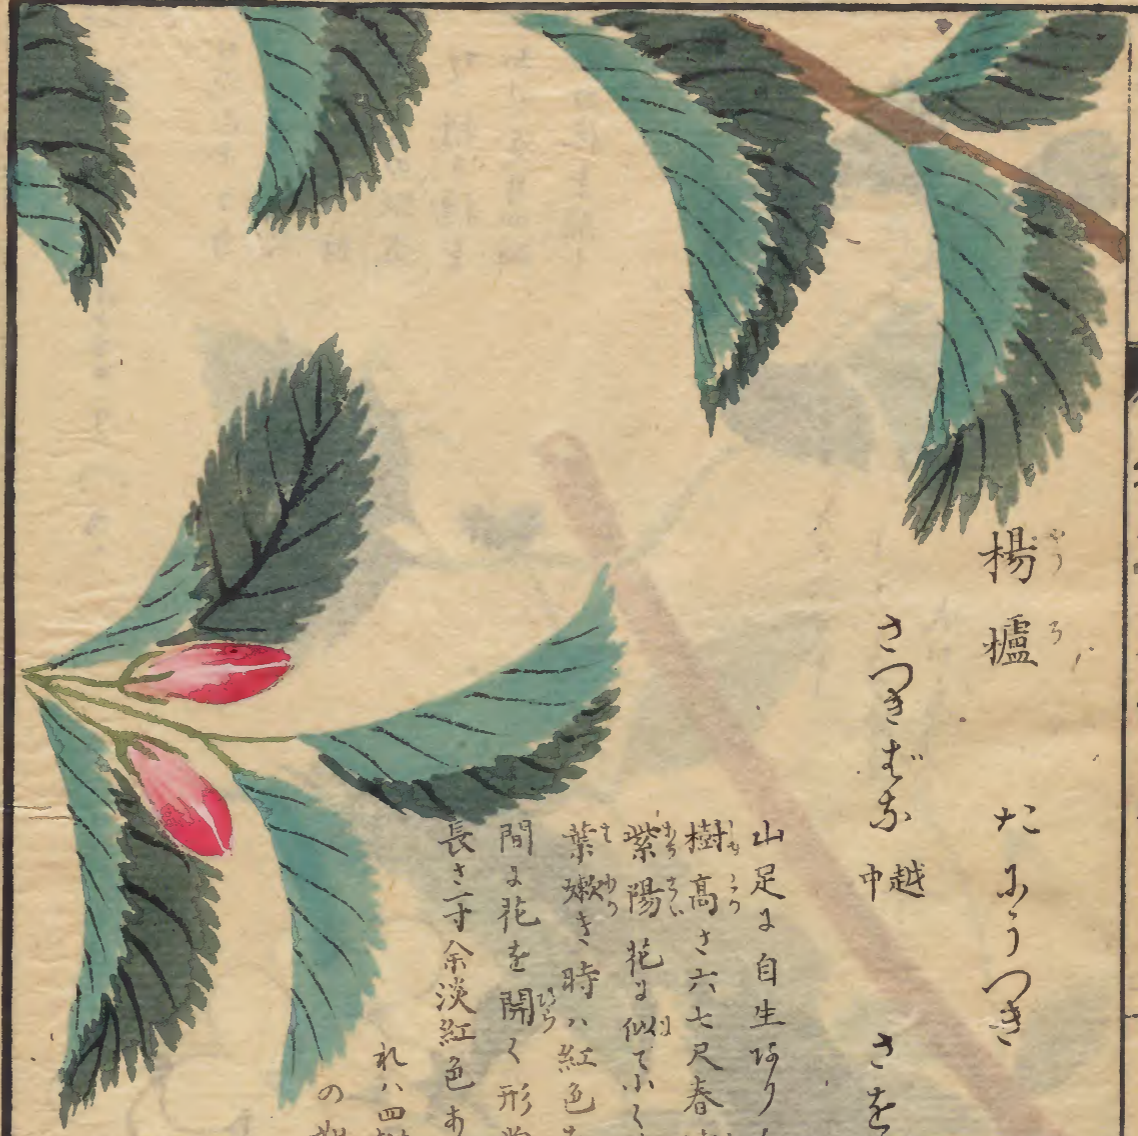 楊櫨 たにうつき
さつきばな 越中 さを
山足に自生あり
樹高さ六七尺春
紫陽花に似て小く
葉嫩き時ハ紅色
間に花を開く形
長さ一寸余淡紅色あ
れハ四
の